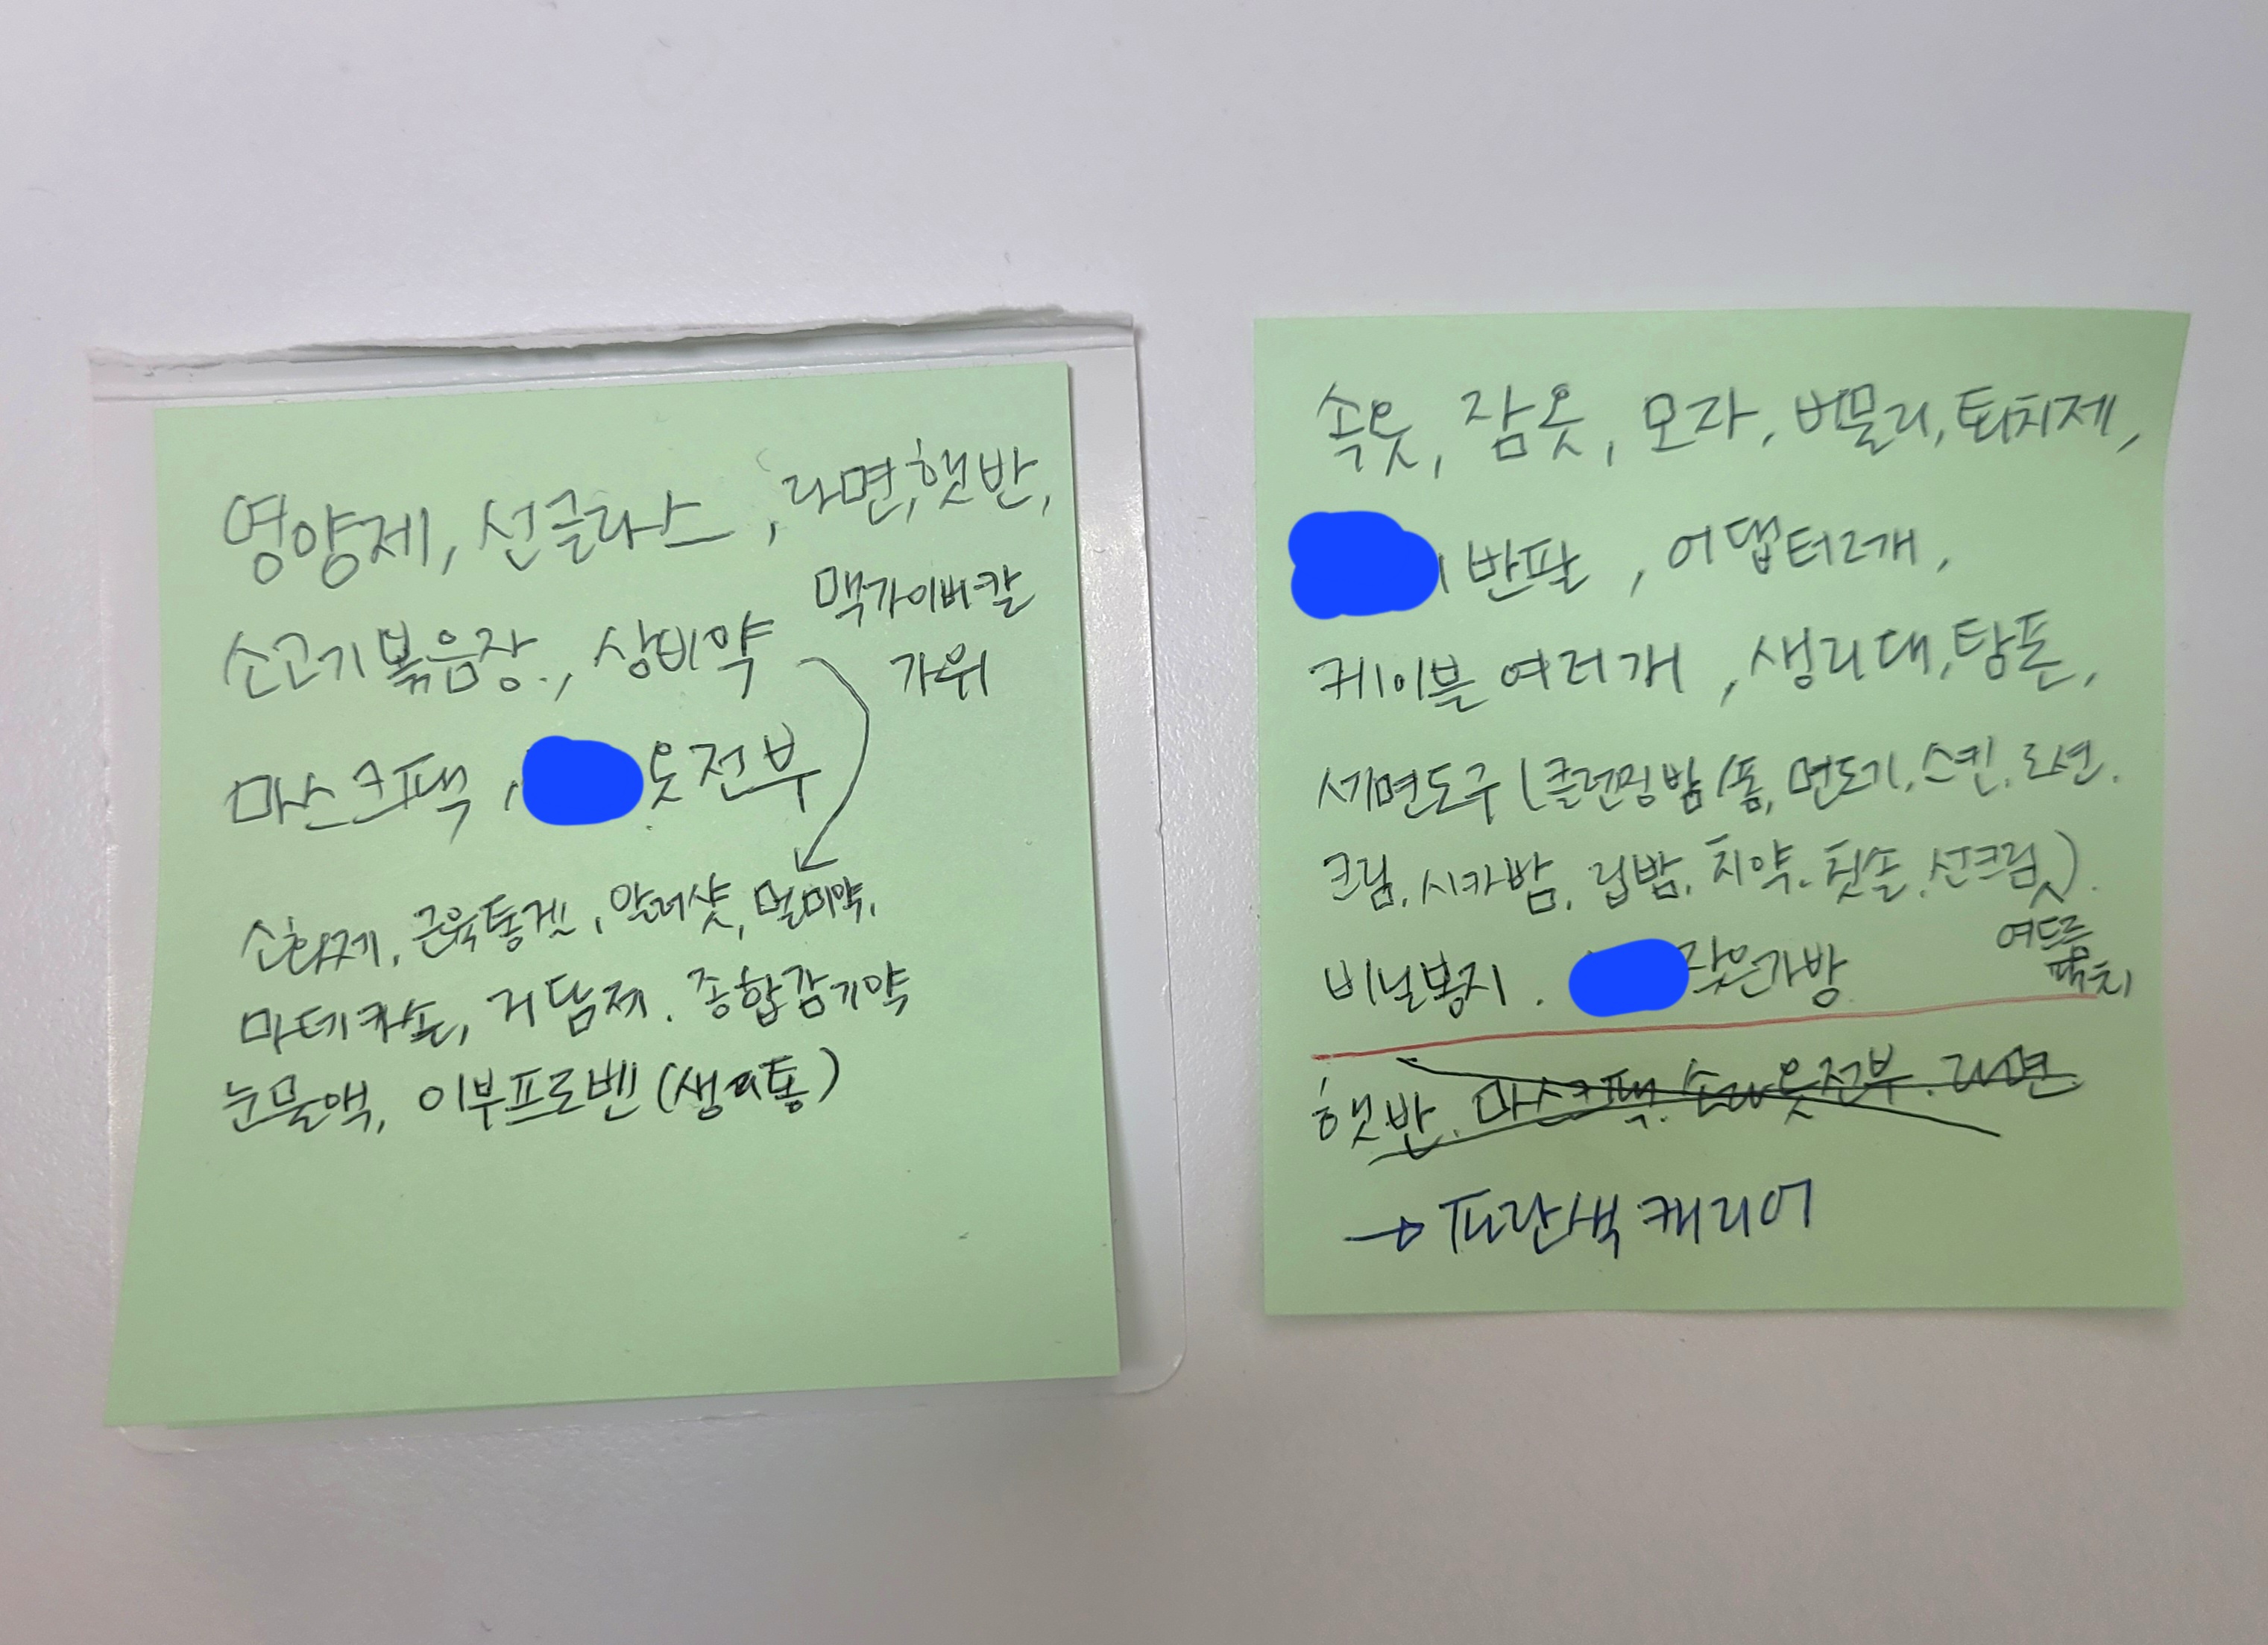 영양제, 선글라스, 라면, 햇반,
맥가이버칼
소고기볶음장, 상비약
가위
마스크팩, 옷전부
소화제, 근육통겔, 알러샷, 멀미약,
마데카솔, 거담제. 종합감기약
눈물액, 이부프로벤(생리통)
속옷, 잠옷, 모자, 버물리, 퇴치제,
반팔, 어댑터2개,
케이블 여러개, 생리대, 탐폰,
세면도구 (클렌징밤/폼, 면도기, 스킨, 로션.
크림, 시카밤, 립밤, 치약. 칫솔, 선크림).
여드름
패치
비닐봉지. 작은가방
햇반. 마스크팩. 옷전부. 라면
→ 파란색 캐리어